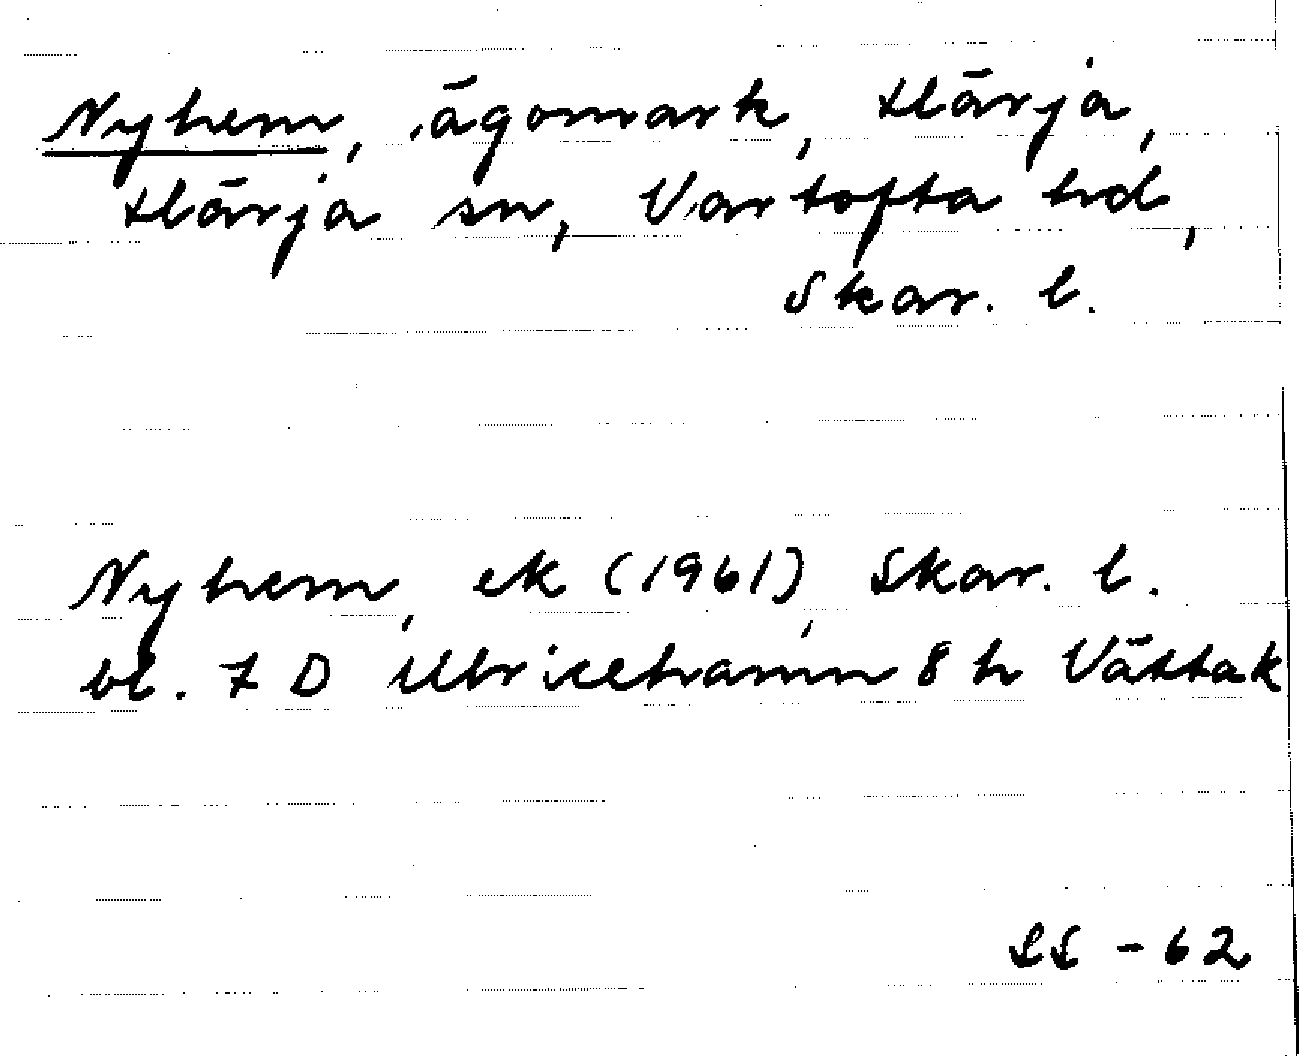 Nyhem, ägomark, Härja,
Härja sn, Vartofta hd,
Skar. l.
Nyhem, ek (1961), Skar. l.
bl. 7 D Ulricehamn 8 h Vättak
LL - 62